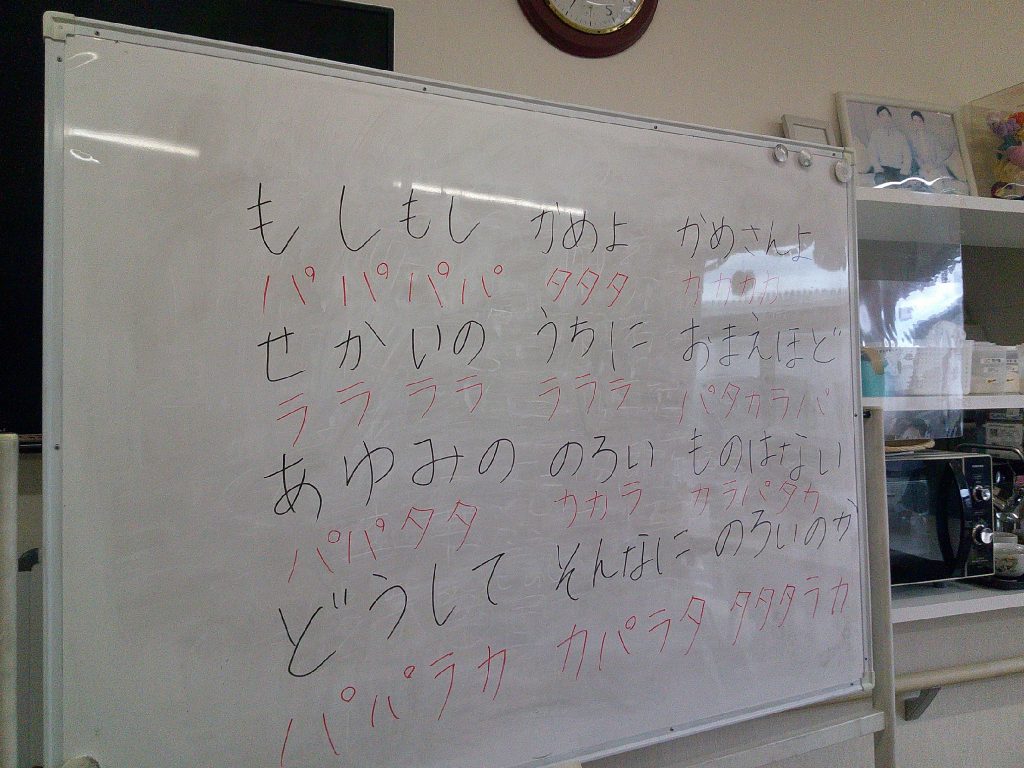 もしもし かめよ かめさんよ
パパパパ タタタ カカカカ
せかいの うちに おまえほど
ララララ ラララ パタカラパ
あゆみの のろい ものはない
パパタタ カカラ カラパタカ
どうして そんなに のろいのか
パパラカ カパラタ タタタラカ